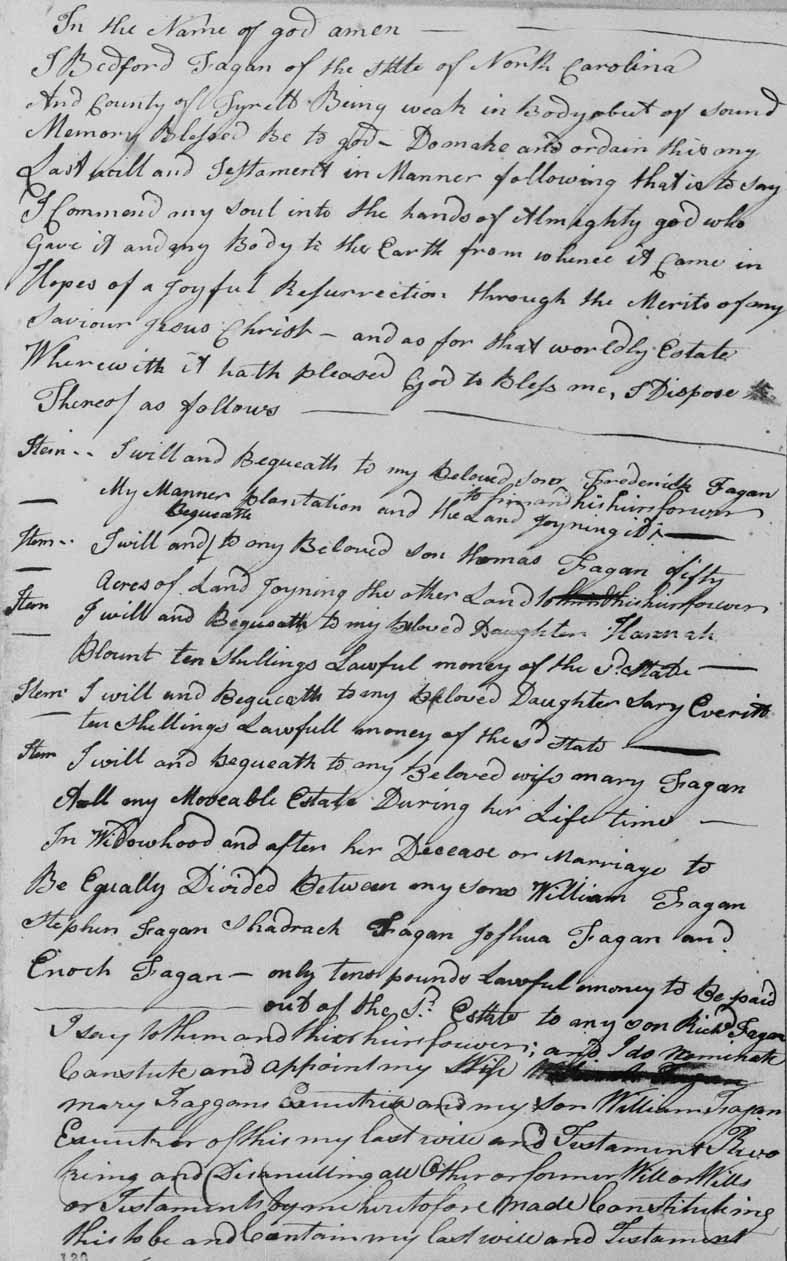 In the Name of god amen
I Bedford Fagan of the state of North Carolina
And County of Tyrell Being weak in Body but of sound
Memory Blessed Be to god - Do make and ordain this my
Last will and Testament in Manner following that is to say
I Commend my soul into the hands of Almighty god who
Gave it and my Body to the Earth from whence it Came in
Hopes of a Joyful Resurrection through the Merits of my
Saviour Jesus Christ - and as for that worldly Estate
Wherewith it hath pleased God to Bless me, I Dispose
Thereof as follows
Item -- I will and Bequeath to my Beloved son Frederick Fagan
My Manner Plantation and the Land Joyning it to him and his heirs forever
Item -- I will and Bequeath to my Beloved son thomas Fagan fifty
Acres of Land Joyning the other Land to him his heirs forever
Item I will and Bequeath to my beloved Daughter Hannah
Blount ten shillings Lawful money of the sd state
Item I will and bequeath to my beloved Daughter Sary Everitt
ten shillings Lawfull money of the sd state
Item I will and bequeath to my Beloved wife mary Fagan
All my Moveable Estate During her Life time
In Widowhood and after her Decease or Marriage to
Be Equally Divided between my sons William Fagan
Stephen Fagan Shadrack Fagan Joshua Fagan and
Enoch Fagan - only tenn pounds Lawful money to be paid
out of the sd. Estate to my son Richd Fagan
I say to them and their heirs forever; and I do Nominate
Constute and appoint my Wife
mary Faggans Executrix and my son William Fagan
Executor of this my last will and Testament Revo
king and Disanulling all Other or former Will or Wills
or Testaments by me heretofore made Constituting
this to be and Contain my last will and Testament
130